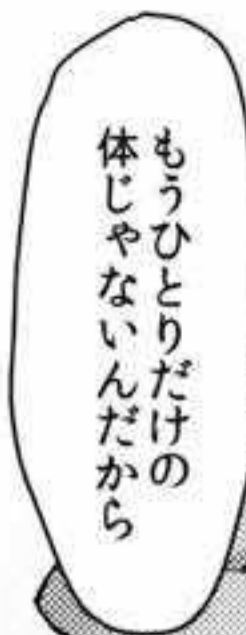 もうひとりだけの
体じゃないんだから